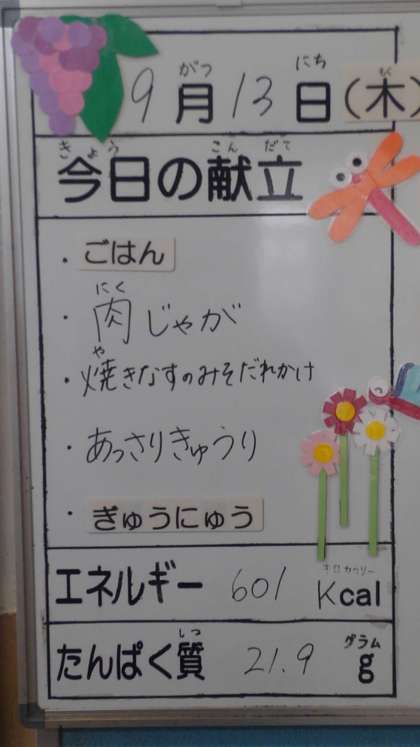 9月13日(木)
がつ にち もく
きょう こん だて
今日の献立
・ごはん
にく
・肉じゃが
や
・焼きなすのみそだれかけ
・あっさりきゅうり
・ぎゅうにゅう
キロカロリー
エネルギー 601 Kcal
しつ グラム
たんぱく質 21.9 g